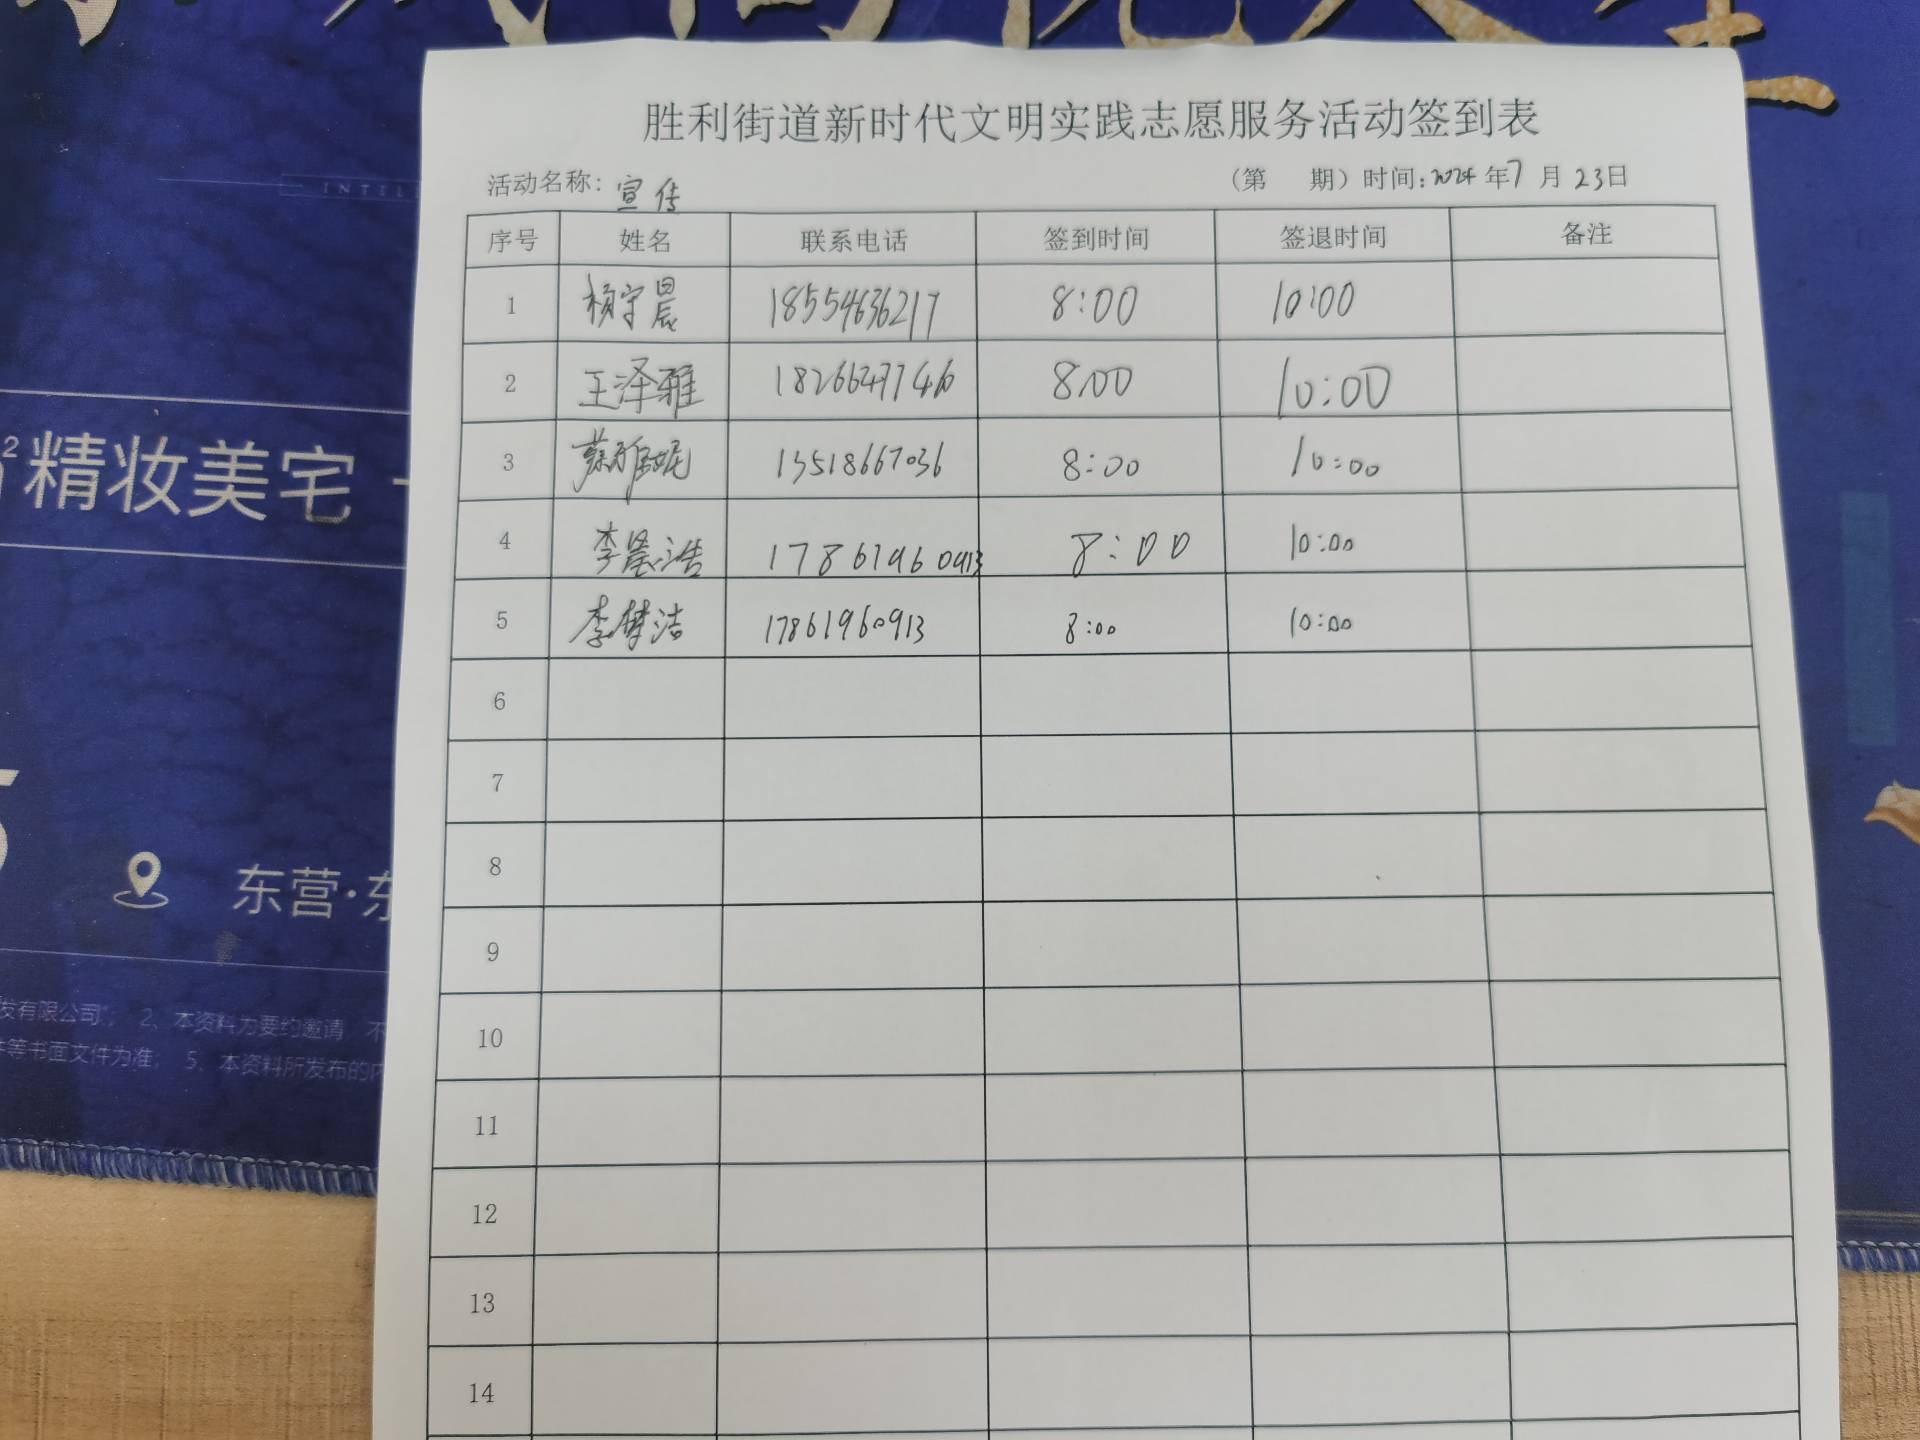 INTELLI
精妆美宅
东营·东
发有限公司"； 2、本资料为要约邀请，不
件等书面文件为准； 5、本资料所发布的内
胜利街道新时代文明实践志愿服务活动签到表
活动名称：宣传 （第 期）时间：2024年7月23日
序号 姓名 联系电话 签到时间 签退时间 备注
1 杨宇晨 18554636217 8:00 10:00
2 王泽雅 18266477446 8:00 10:00
3 13518667036 8:00 10:00
4 李晨浩 17861960913 8:00 10:00
5 李梦洁 17861960913 8:00 10:00
6
7
8
9
10
11
12
13
14